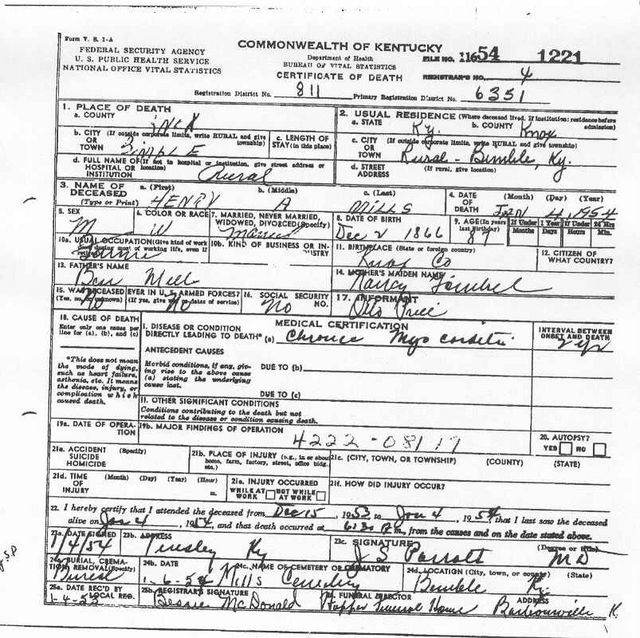 Form V. S. 1-A
FEDERAL SECURITY AGENCY
U. S. PUBLIC HEALTH SERVICE
NATIONAL OFFICE VITAL STATISTICS
COMMONWEALTH OF KENTUCKY
Department of Health
BUREAU OF VITAL STATISTICS
CERTIFICATE OF DEATH
FILE NO. 11654 1221
REGISTRAR'S NO. 4
Registration District No. 811
Primary Registration District No. 6351
1. PLACE OF DEATH
a. COUNTY
2. USUAL RESIDENCE (Where deceased lived. If institution: residence before admission)
a. STATE Ky. b. COUNTY Knox
b. CITY (If outside corporate limits, write RURAL and give township)
OR TOWN BIMBLE
c. LENGTH OF STAY (in this place)
c. CITY (If outside corporate limits, write RURAL and give township)
OR TOWN Rural - Bimble, Ky.
d. FULL NAME OF (If not in hospital or institution, give street address or location)
HOSPITAL OR INSTITUTION Rural
d. STREET ADDRESS (If rural, give location)
3. NAME OF DECEASED (Type or Print)
a. (First) HENRY b. (Middle) A c. (Last) Mills
4. DATE OF DEATH (Month) (Day) (Year) Jan 4 1954
5. SEX M
6. COLOR OR RACE W
7. MARRIED, NEVER MARRIED, WIDOWED, DIVORCED (Specify) Married
8. DATE OF BIRTH Dec 2 1866
9. AGE (In years last birthday) 87
If Under 1 Year Months Days
If Under 24 Hrs Hours Min.
10a. USUAL OCCUPATION (Give kind of work done during most of working life, even if
10b. KIND OF BUSINESS OR INDUSTRY
11. BIRTHPLACE (State or foreign country) Knox Co
12. CITIZEN OF WHAT COUNTRY?
13. FATHER'S NAME Ben Mills
14. MOTHER'S MAIDEN NAME Nancy
15. WAS DECEASED EVER IN U. S. ARMED FORCES? (Yes, no, (If yes, give dates of service) No
16. SOCIAL SECURITY NO. No
17. INFORMANT Otto Price
18. CAUSE OF DEATH
Enter only one cause per line for (a), (b), and (c)
*This does not mean the mode of dying, such as heart failure, asthenia, etc. It means the disease, injury, or complication which caused death.
MEDICAL CERTIFICATION
INTERVAL BETWEEN ONSET AND DEATH
I. DISEASE OR CONDITION DIRECTLY LEADING TO DEATH* (a) Chronic Myocarditis
ANTECEDENT CAUSES
Morbid conditions, if any, giving rise to the above cause (a) stating the underlying cause last.
DUE TO (b)
DUE TO (c)
II. OTHER SIGNIFICANT CONDITIONS
Conditions contributing to the death but not related to the disease or condition causing death.
19a. DATE OF OPERATION
19b. MAJOR FINDINGS OF OPERATION
4222-08117
20. AUTOPSY?
YES NO
21a. ACCIDENT SUICIDE HOMICIDE (Specify)
21b. PLACE OF INJURY (e.g., in or about home, farm, factory, street, office bldg. etc.)
21c. (CITY, TOWN, OR TOWNSHIP) (COUNTY) (STATE)
21d. TIME OF INJURY (Month) (Day) (Year) (Hour)
21e. INJURY OCCURRED WHILE AT WORK NOT WHILE AT WORK
21f. HOW DID INJURY OCCUR?
22. I hereby certify that I attended the deceased from Dec 15, 1953 to Jan 4, 1954, that I last saw the deceased
alive on Jan 4, 1954, and that death occurred at 6:30 m., from the causes and on the date stated above.
23a. DATE SIGNED 1/4/54
23b. ADDRESS Tinsley Ky
23c. SIGNATURE J S Parrott (Degree or title) MD
24a. BURIAL, CREMATION, REMOVAL (Specify) Burial
24b. DATE 1-6-54
24c. NAME OF CEMETERY OR CREMATORY Mills Cemetery
24d. LOCATION (City, town, or county) (State) Bimble Ky.
25a. DATE REC'D BY LOCAL REG.
25b. REGISTRAR'S SIGNATURE Bessie McDonald
FUNERAL DIRECTOR Hopper Funeral Home
ADDRESS Barbourville K.